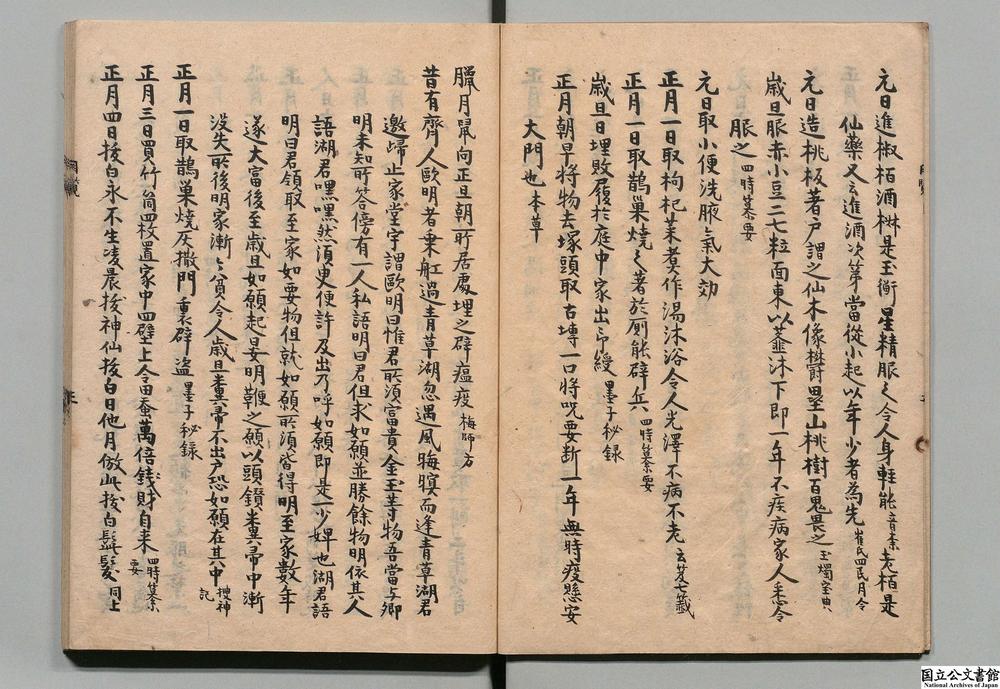 元日進椒栢酒椒是玉衡星精服之令人身輕能音奈老栢是
仙藥又云進酒次第當從小起以年少者為先崔氏四民月令
元日造桃板著戸謂之仙木像欝壘山桃樹百鬼畏之玉燭宝典
歳旦服赤小豆二七粒面東以虀汁下即一年不疾病家人悉令
服之四時纂要
元日取小便洗腋氣大効
正月一日取枸杞菜煮作湯沐浴令人光澤不病不老
正月一日取鵲巣焼之著於厠能辟兵四時纂要
歳旦日埋敗履於庭中家出印綬墨子秘録
正月朝早将物去塚頭取古塼一口将咒要断一年無時疫懸安
大門也本草
臘月鼠向正旦朝所居處埋之辟瘟疫梅師方
昔有齊人歐明者乗舡過青草湖忽遇風晦暝而逢青草湖君
邀歸止家堂宇謂歐明曰惟君所須富貴金玉等物吾當与卿
明未知所答傍有一人私語明曰君但求如願並勝餘物明依其人
語湖君嘿嘿然須更便許及出乃呼如願即是一少婢也湖君語
明曰君領取至家如要物但就如願所須皆得明至家數年
遂大富後至歳旦如願起晏明鞭之願以頭鑚糞帚中漸
没失所後明家漸〻貧今人歳旦糞帚不出戸恐如願在其中搜神記
正月一日取鵲巣焼灰撒門裏辟盗墨子秘録
正月三日買竹筒四枚置家中四壁上令田蚕萬倍錢財自来四時纂要
正月四日拔白永不生凌晨拔神仙拔白日他月倣此拔白鬚髪同上
国立公文書館
National Archives of Japan